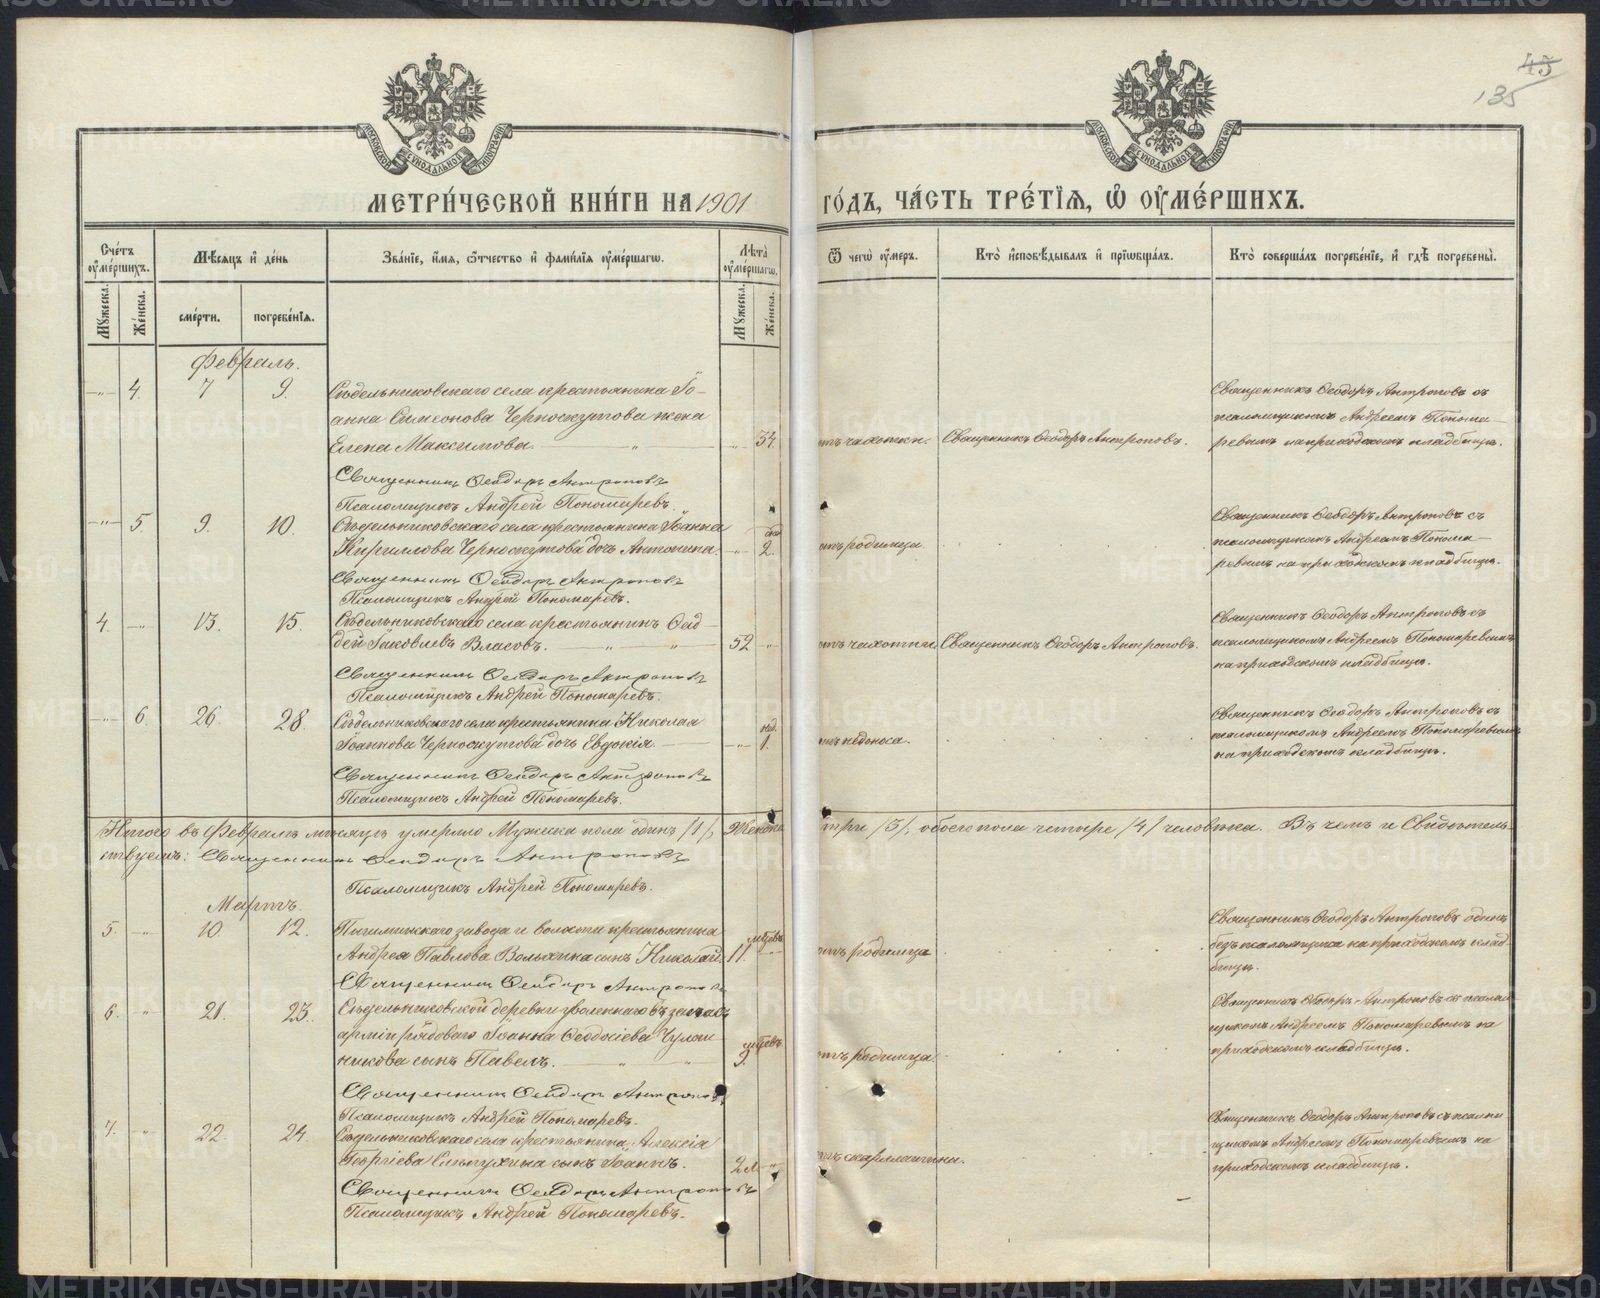 45
135
МОСКОВСКОЙ СѴНОДАЛЬНОЙ ТИПОГРАФІИ
МОСКОВСКОЙ СѴНОДАЛЬНОЙ ТИПОГРАФІИ
МЕТРИ́ЧЕСКОЙ КНИ́ГИ НА 1901 ГО́ДЪ, ЧА́СТЬ ТРЕ́ТІЯ, Ѡ҆ ОУ҆МЕ́РШИХЪ.
Сче́тъ оу҆ме́ршихъ.
Мѣ́сяцъ и҆ де́нь
Зва́ніе, и҆́мя, ѻ҆́тчество и҆ фами́лія оу҆ме́ршагѡ.
Лѣ́та оу҆ме́ршагѡ.
Ѿ чегѡ̀ оу҆́меръ.
Кто̀ и҆сповѣ́дывалъ и҆ прїѡбща́лъ.
Кто̀ соверша́лъ погребе́ніе, и҆ гдѣ̀ погребены̀.
Мꙋ́жеска.
Же́нска.
сме́рти.
погребе́нія.
Мꙋ́жеска.
Же́нска.
Февраль.
4. 7 9. Сѣдельниковскаго села крестьянина Іо-
анна Симеонова Черноскутова жена
Елена Максимова. 34 отъ чахотки. Священникъ Ѳеодоръ Антроповъ.
Священникъ Ѳеодоръ Антроповъ съ
псаломщикомъ Андреемъ Понома-
ревымъ на приходскомъ кладбищѣ.
Священникъ Ѳеодоръ Антроповъ
Псаломщикъ Андрей Пономаревъ.
5. 9. 10. Сѣдельниковскаго села крестьянина Іоанна
Кириллова Черноскутова дочь Антонина. 2. отъ родимца.
Священникъ Ѳеодоръ Антроповъ съ
псаломщикомъ Андреемъ Понома-
ревымъ на приходскомъ кладбищѣ.
Священникъ Ѳеодоръ Антроповъ
Псаломщикъ Андрей Пономаревъ.
4. 13. 15. Сѣдельниковскаго села крестьянинъ Ѳад-
дей Іаковлевъ Власовъ. 52 отъ чахотки. Священникъ Ѳеодоръ Антроповъ.
Священникъ Ѳеодоръ Антроповъ съ
псаломщикомъ Андреемъ Пономаревымъ
на приходскомъ кладбищѣ.
Священникъ Ѳеодоръ Антроповъ
Псаломщикъ Андрей Пономаревъ.
6. 26. 28. Сѣдельниковскаго села крестьянина Николая
Іоаннова Черноскутова дочь Евдокія. нед. 1. отъ недоноса.
Священникъ Ѳеодоръ Антроповъ съ
псаломщикомъ Андреемъ Пономаревымъ
на приходскомъ кладбищѣ.
Священникъ Ѳеодоръ Антроповъ
Псаломщикъ Андрей Пономаревъ.
Итого въ Февралѣ мѣсяцѣ умерло Мужеска пола одинъ /1/, Женска три /3/, обоего пола четыре /4/ человѣка. Въ чемъ и Свидѣтель-
ствуемъ: Священникъ Ѳеодоръ Антроповъ
Псаломщикъ Андрей Пономаревъ.
Мартъ.
5. 10. 12. Пышминскаго завода и волости крестьянина
Андрея Павлова Волыхина сынъ Николай. 11. мѣсяцевъ отъ родимца
Священникъ Ѳеодоръ Антроповъ одинъ
безъ псаломщика на приходскомъ клад-
бищѣ.
Священникъ Ѳеодоръ Антроповъ
6. 21. 23. Сѣдельниковской деревни уволеннаго въ запасъ
арміи рядоваго Іоанна Ѳеодосіева
сынъ Павелъ. 9. мѣсяцевъ отъ родимца.
Священникъ Ѳеодоръ Антроповъ съ псалом-
щикомъ Андреемъ Пономаревымъ на
приходскомъ кладбищѣ.
Священникъ Ѳеодоръ Антроповъ
Псаломщикъ Андрей Пономаревъ.
7. 22. 24. Сѣдельниковскаго села крестьянина Алексія
Георгіева сынъ Іоаннъ. 2 м. отъ скарлатины.
Священникъ Ѳеодоръ Антроповъ съ псалом-
щикомъ Андреемъ Пономаревымъ на
приходскомъ кладбищѣ.
Священникъ Ѳеодоръ Антроповъ
Псаломщикъ Андрей Пономаревъ.
METRIKI.GASO-URAL.RU